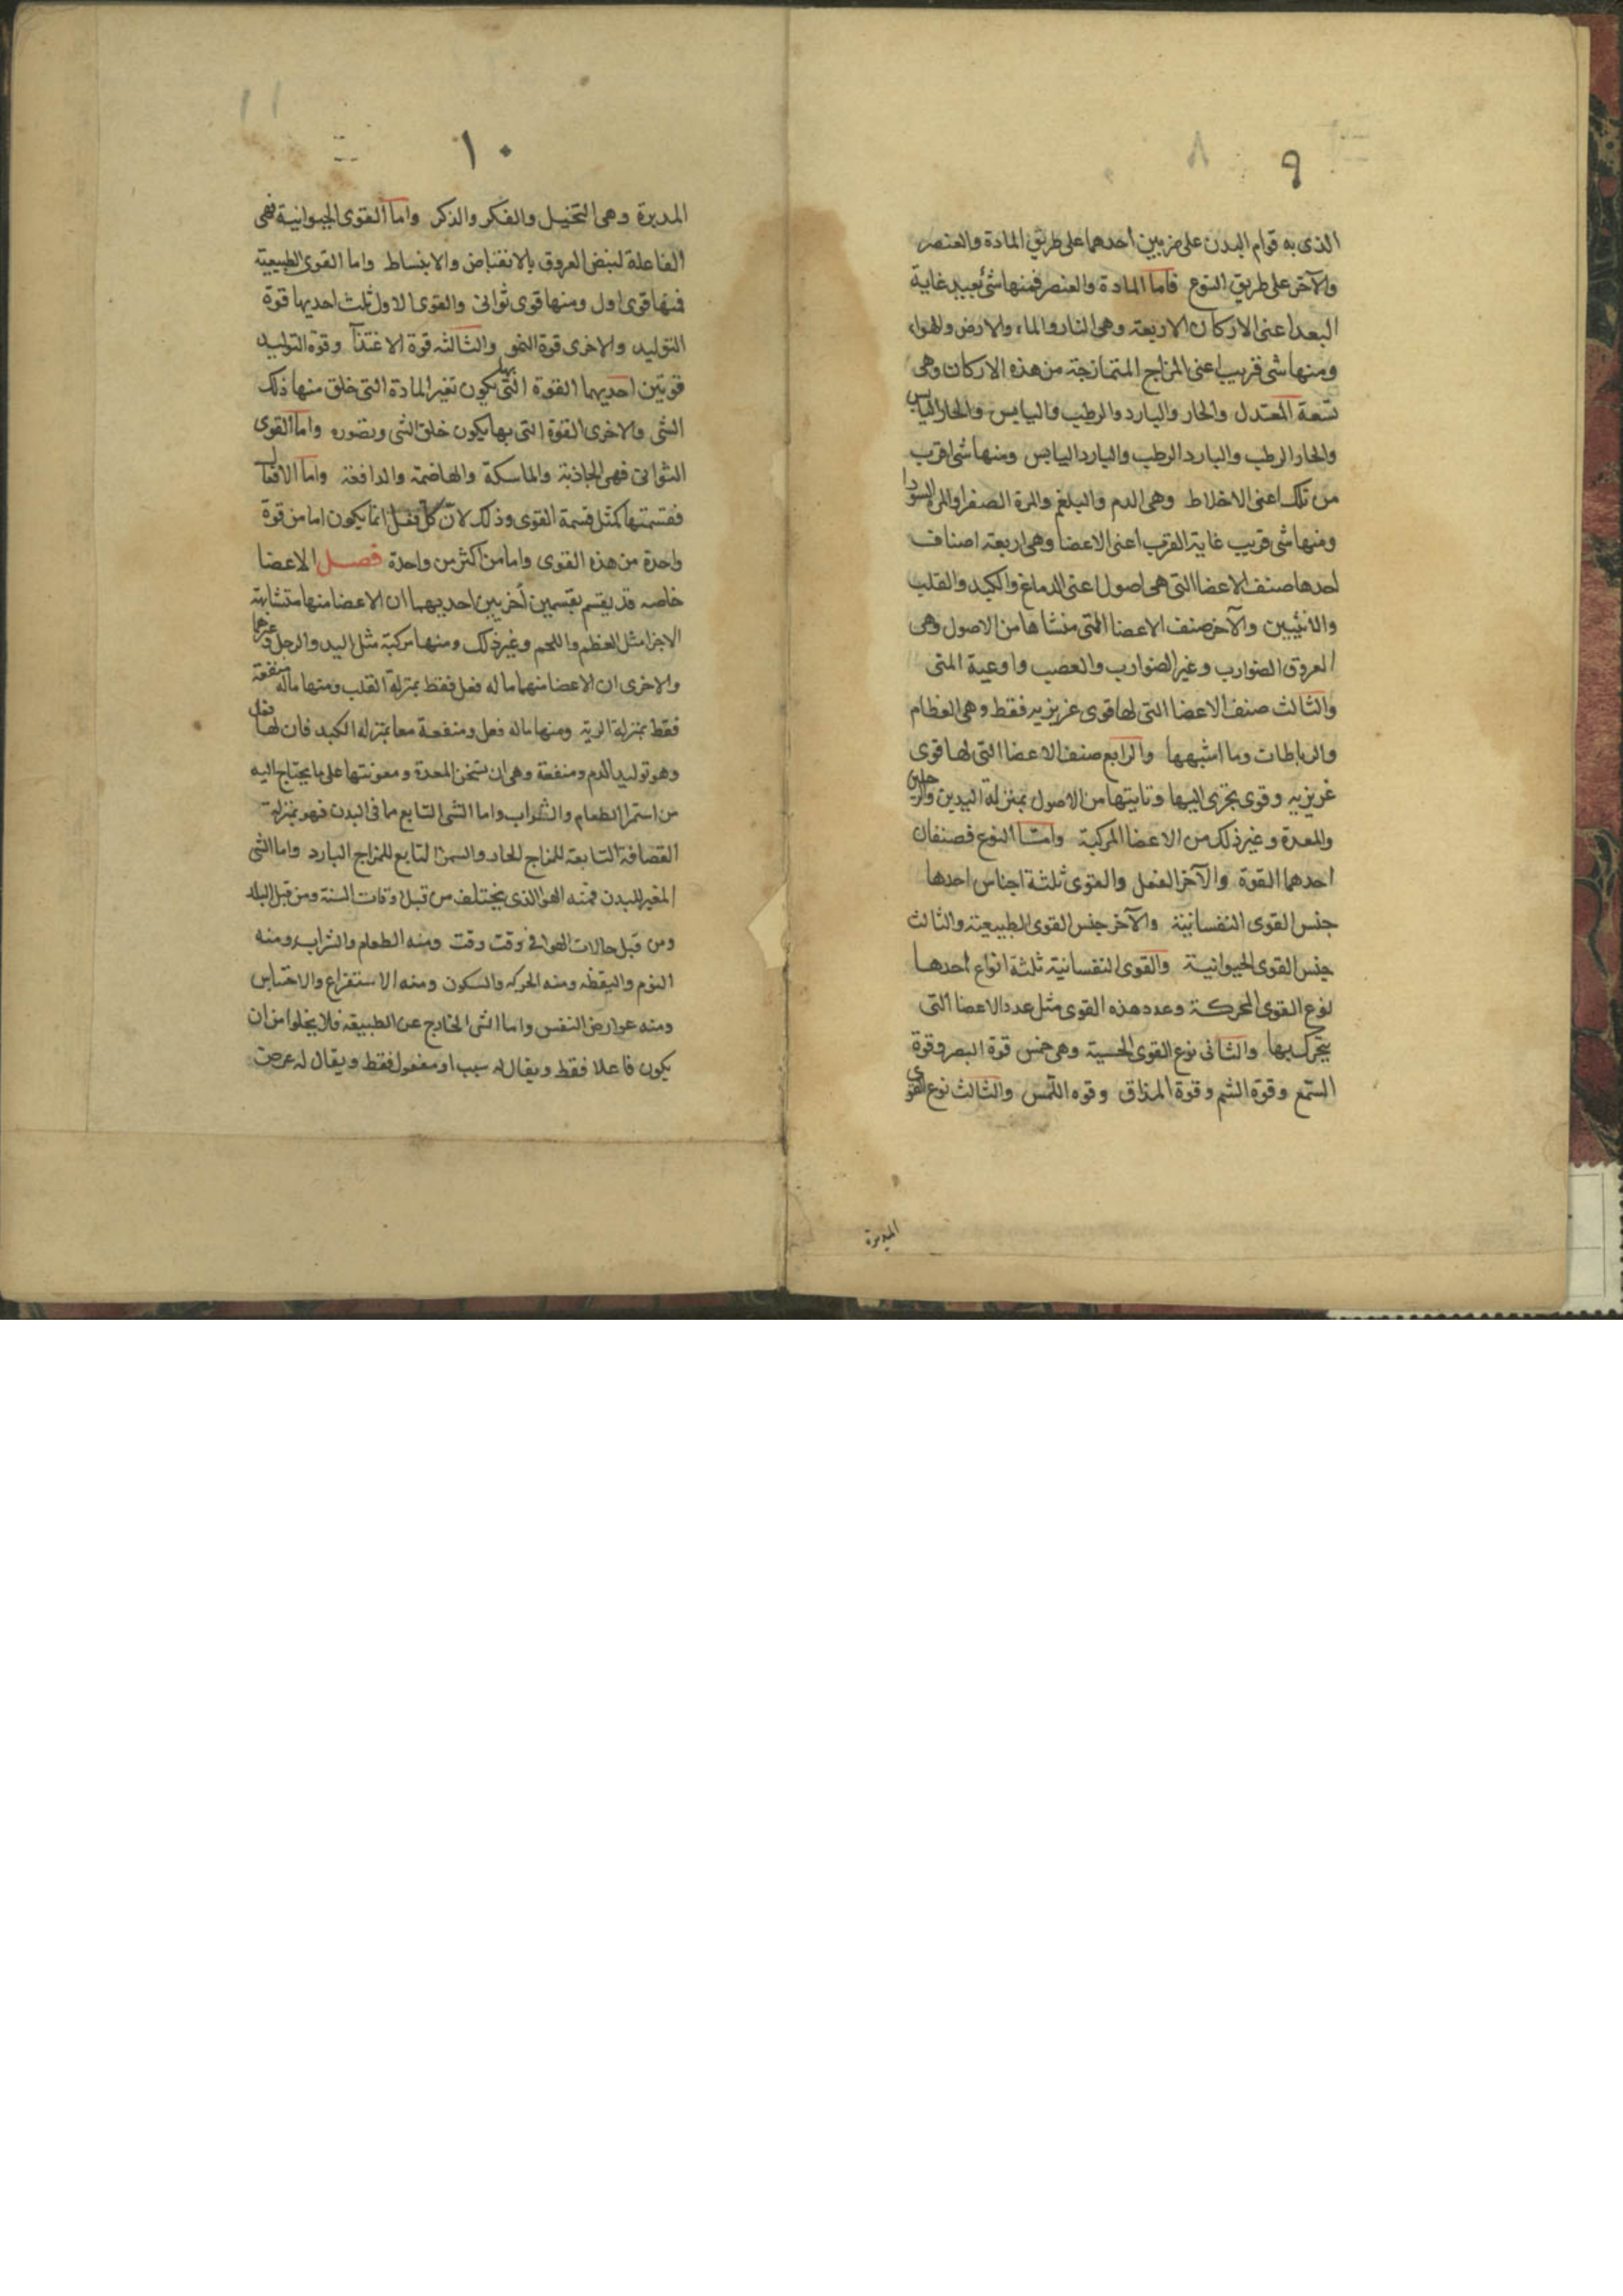 ٩
الذى به قوام البدن على ضربين احدهما على طريق المادة والعنصر
والآخر على طريق النوع فاما المادة والعنصر فمنها شئ بعيد غاية
البعد اعنى الاركان الاربعة وهى النار والماء والارض والهواء
ومنها شى قريب اعنى المزاج المتمازجة من هذه الاركان وهى
تسعة المعتدل والحار والبارد والرطب واليابس والحار اليابس
والحار الرطب والبارد الرطب والبارد اليابس ومنها شى اقرب
من تلك اعنى الاخلاط وهى الدم والبلغم والمرة الصفرا والمرة السودا
ومنها شى قريب غاية القرب اعنى الاعضا وهى اربعة اصناف
احدها صنف الاعضا التى هى اصول اعنى الدماغ والكبد والقلب
والانثيين والآخر صنف الاعضا التى منشاها من الاصول وهى
العروق الضوارب وغير الضوارب والعصب واوعية المنى
والثالث صنف الاعضا التى لها قوى غريزيه فقط وهى العظام
والرباطات وما اشبهها والرابع صنف الاعضا التى لها قوى
غريزيه وقوى تجرى اليها وتاتيتها من الاصول بمنزلة اليدين والرجلين
والمعدة وغير ذلك من الاعضا المركبة وامّا النوع فصنفان
احدهما القوة والآخر الفعل والقوى ثلثة اجناس احدها
جنس القوى النفسانية والآخر جنس القوى الطبيعية والثالث
جنس القوى الحيوانية والقوى النفسانية ثلثة انواع احدها
نوع القوى المحركة وعدد هذه القوى مثل عدد الاعضا التى
يتحرك بها والثانى نوع القوى الحسية وهى خمس قوة البصر وقوة
السّمع وقوة الشم وقوة المذاق وقوه اللّمس والثالث نوع القوى
المدبرة
١٠
المدبرة وهى التخيل والفكر والذكر واما القوى الحيوانية فهى
الفاعلة لنبض العروق بالانقباض والانبساط واما القوى الطبيعية
فمنها قوى اول ومنها قوى ثوانى والقوى الاول ثلث احديها قوة
التوليد والاخرى قوة النمو والثالثه قوة الاغتذا وقوة التوليد
قوتين احديهما القوة التى بها يكون تغير المادة التى خلق منها ذلك
الشى والاخرى القوة التى بها يكون خلق الشى وتصوره واما القوى
الثوانى فهى الجاذبة والماسكة والهاضمة والدافعة واما الافعال
فقسمتها كمثل قسمة القوى وذلك لانّ كل فعل انما يكون اما من قوة
واحدة من هذه القوى واما من اكثر من واحدة فصل الاعضا
خاصه قد يقسم بقسمين أخريين احديهما ان الاعضا منها متشابهة
الاجزا مثل العظم واللحم وغير ذلك ومنها مركبة مثل اليد والرجل وغيرهما
والاخرى ان الاعضا منها ما له فعل فقط بمنزلة القلب ومنها ماله منفعة
فقط بمنزلة الرية ومنها ماله فعل ومنفعة معا بمنزلة الكبد فان لها فعل
وهو توليد الدم ومنفعة وهى ان تسخن المعدة ومعونتها على ما يحتاج اليه
من استمرا الطعام والشراب واما الشى التابع مما فى البدن فهو بمنزلة
القضافة التابعة للمزاج الحار والسمن التابع للمزاج البارد واما الشى
المغير للبدن فمنه الهوا الذى يختلف من قبل اوقات السنة ومن قبل البلاد
ومن قبل حالات الهوا فى وقت وقت ومنه الطعام والشراب ومنه
النوم واليقظه ومنه الحركه والسكون ومنه الاستفراغ والاحتباس
ومنه عوارض النفس واما الشى الخارج عن الطبيعة فلا يخلوا من ان
يكون فاعلا فقط ويقال له سبب او مفعول فقط ويقال له عرض